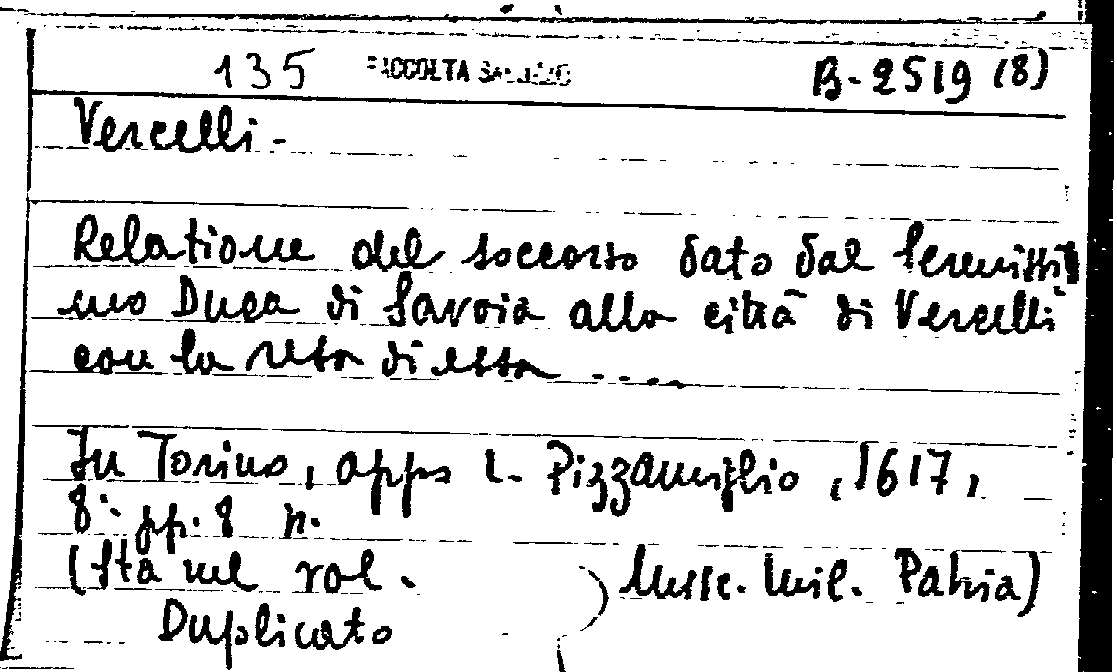 135 RACCOLTA SALUZZO B-2519 (8)
Vercelli -
Relatione del soccorso dato dal Serenissi
mo Duca di Savoia alla città di Vercelli
con la resa di essa .....
In Torino, appo L. Pizzamiglio, 1617,
8° pp. 8 n.
(Sta nel vol. Misc. Mil. Patria)
Duplicato